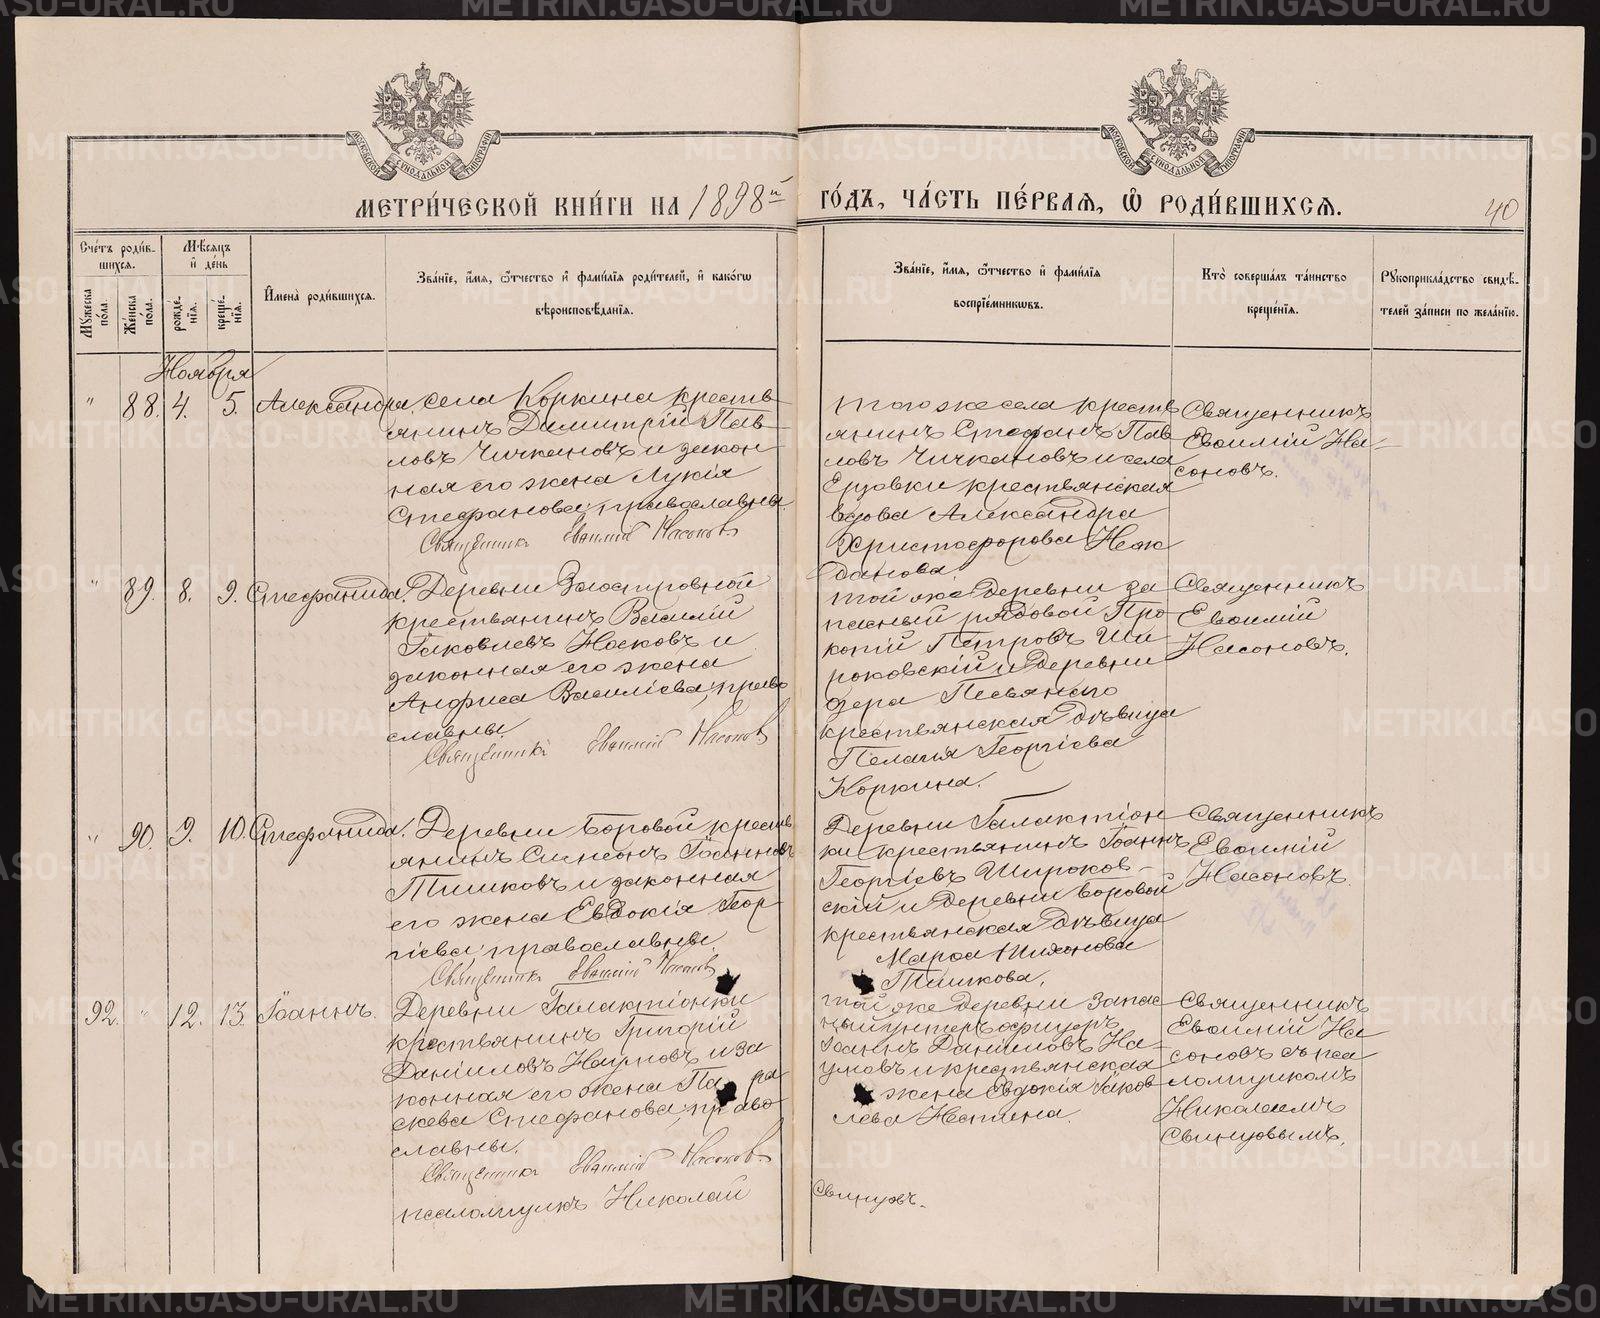 МЕТРИ́ЧЕСКОЙ КНИ́ГИ НА 1898й ГО́ДЪ, ЧА́СТЬ ПЕ́РВАЯ, Ѽ РОДИ́ВШИХСЯ.
40
МОСКОВСКОЙ СѴНОДАЛЬНОЙ ТИПОГРАФІИ
МОСКОВСКОЙ СѴНОДАЛЬНОЙ ТИПОГРАФІИ
Сче́тъ роди́в-
шихся.
Мѣ́сяцъ
и҆ де́нь
Мꙋ́жеска
по́ла.
Же́нска
по́ла.
рожде́-
нїя.
креще́-
нїя.
И҆мена̀ роди́вшихся.
Зва́нїе, и҆́мя, ѻ҆́тчество и҆ фами́лїя роди́телей, и҆ како́гѡ
вѣроисповѣ́данїя.
Зва́нїе, и҆́мя, ѻ҆́тчество и҆ фами́лїя
воспрїе́мникѡвъ.
Кто̀ соверша́лъ та́инство
креще́нїя.
Рꙋкоприкла́дство свидѣ́-
телей за́писи по жела́нїю.
Ноября
" 88. 4. 5. Александра.
села Коркина крестья-
янинъ Димитрій Пав-
ловъ Чичкановъ и закон-
ная его жена Лукія
Стефанова; православны.
Священникъ Евѳимій Насоновъ
того же села кресть
янинъ Стефанъ Пав
ловъ Чичкановъ и села
крестьянская
вдова Александра
Христофорова Неж
данова.
Священникъ
Евѳимій На-
соновъ.
" 89. 8. 9. Стефанида.
Деревни Заостровной
крестьянинъ Василій
Іаковлевъ Носковъ и
законная его жена
Анфиса Василіева; право
славны.
Священникъ Евѳимій Насоновъ
той же деревни за
пасный рядовой Про
копій Петровъ Ши
роковскій и деревни
озера
крестьянская дѣвица
Пелагія Георгіева
Коркина.
Священникъ
Евѳимій
Насоновъ.
" 90. 9. 10. Стефанида.
Деревни Боровой кресть
янинъ Симеонъ Іоанновъ
Тишковъ и законная
его жена Евдокія Геор
гіева; православны.
Священникъ Евѳимій Насоновъ
Деревни Галактіон
ки крестьянинъ Іоаннъ
Георгіевъ Широков-
скій и деревни Боровой
крестьянская дѣвица
Марѳа
Тишкова.
Священникъ
Евѳимій
Насоновъ.
92. " 12. 13. Іоаннъ.
Деревни Галактіонки
крестьянинъ Григорій
Даніиловъ Наумовъ и за
конная его жена Па ра
скева Стефанова; право
славны.
Священникъ Евѳимій Насоновъ
псаломщикъ Николай
Свинцовъ.
той же деревни запас
ный унтеръ офицеръ
Іоаннъ Даніиловъ На-
умовъ и крестьянская
жена Евдокія Іаков
лева
Священникъ
Евѳимій На
соновъ съ пса
ломщикомъ
Николаемъ
Свинцовымъ.
METRIKI.GASO-URAL.RU